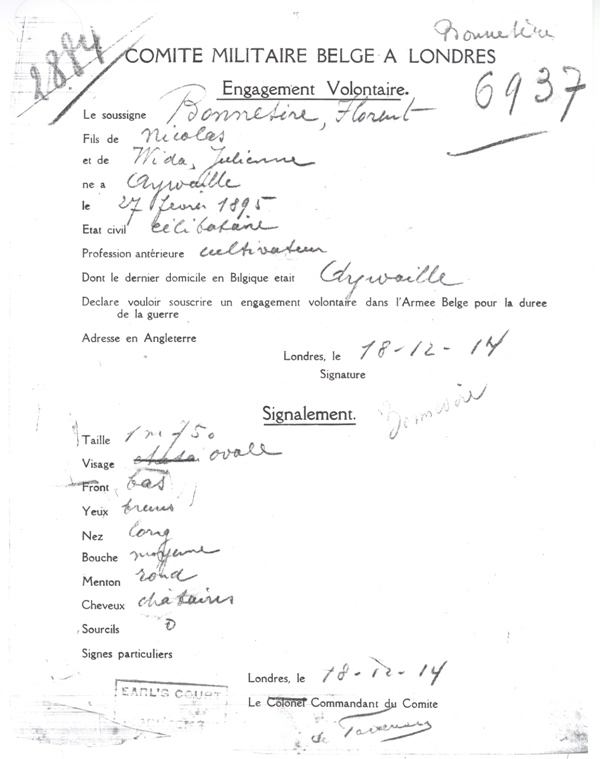 Bonnetére
2884
COMITE MILITAIRE BELGE A LONDRES
Engagement Volontaire.
6937
Le soussigne Bonnesire, Florent
Fils de Nicolas
et de Wida, Julienne
ne a Aywaille
le 27 fevrier 1895
Etat civil célibataire
Profession antérieure cultivateur
Dont le dernier domicile en Bilgique etait Aywaille
Declare vouloir souscrire un engagement volontaire dans l'Armee Belge pour la duree
de la guerre
Adresse en Angleterre
Londres, le 18-12-14
Signature
Signalement.
Taille 1 m 750
Visage ovale
Front bas
Yeux bruns
Nez long
Bouche moyenne
Menton rond
Cheveux châtains
Sourcils 0
Signes particuliers
Londres, le 18-12-14
Le Colonel Commandant du Comite
EARL'S COURT
de